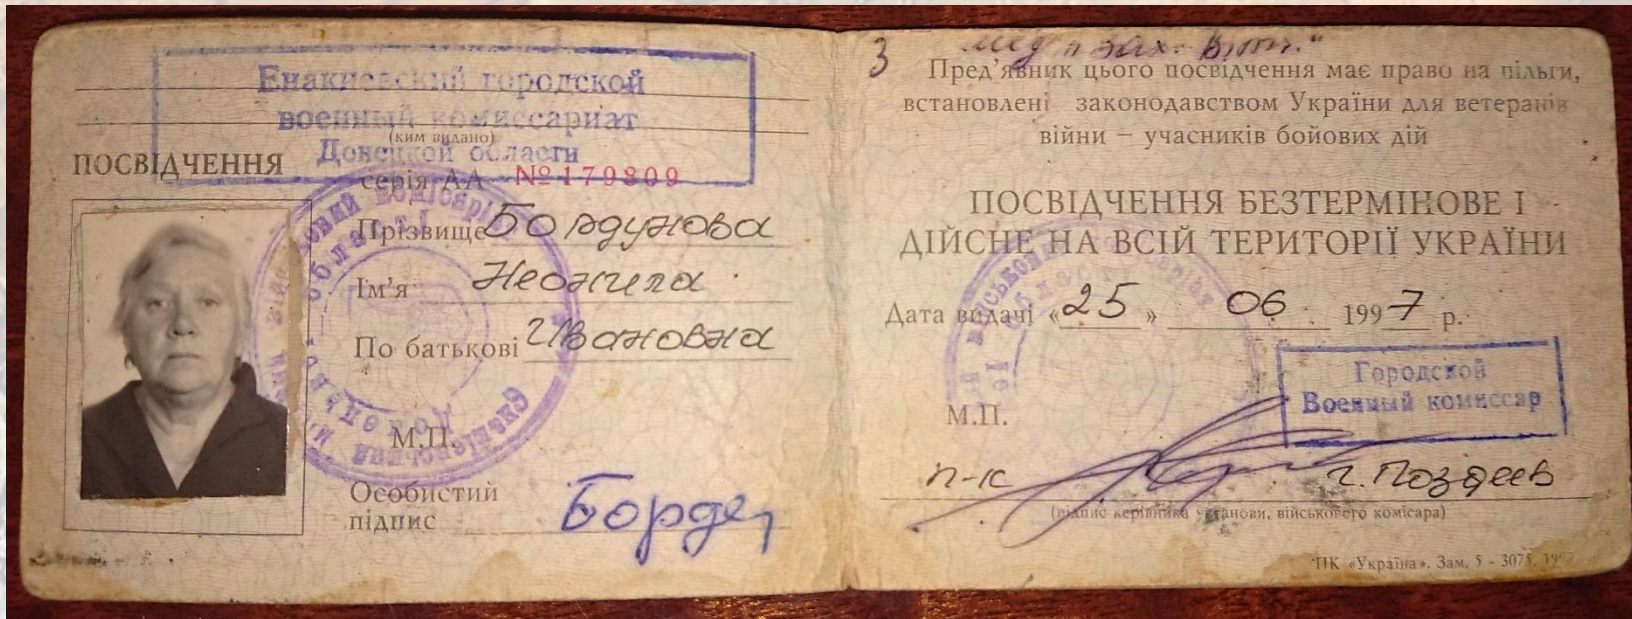 Енакиевский городской
военный комиссариат
(ким видано)
Донецкой области
ПОСВІДЧЕННЯ
серія АА № 179809
Прізвище Бордунова
Ім'я Неонила
По батькові Ивановна
М.П.
Особистий
підпис
З
Пред'явник цього посвідчення має право на пільги,
встановлені законодавством України для ветеранів
війни – учасників бойових дій
ПОСВІДЧЕННЯ БЕЗТЕРМІНОВЕ І
ДІЙСНЕ НА ВСІЙ ТЕРИТОРІЇ УКРАЇНИ
Дата видачі «25» 06 1997 р.
Городской
Военный комиссар
М.П.
п-к г. Поздеев
(підпис керівника установи, військового комісара)
ПК «Україна». Зам. 5 - 3075.